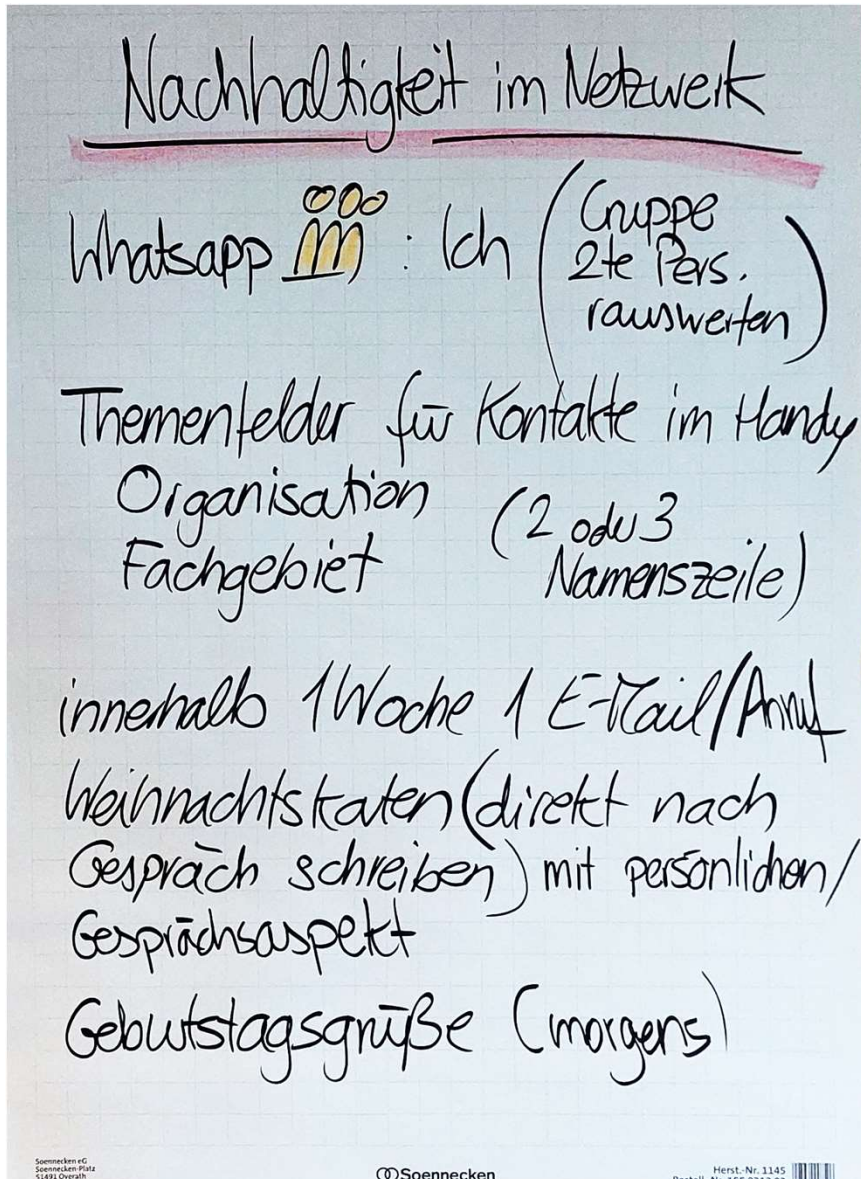 Nachhaltigkeit im Netzwerk
Whatsapp : Ich (Gruppe
2te Pers.
rauswerfen)
Themenfelder für Kontakte im Handy
Organisation
Fachgebiet
(2 oder 3
Namenszeile)
innerhalb 1 Woche 1 E-Mail/Anruf
Weihnachtskaten (direkt nach
Gespräch schreiben) mit persönlichen/
Gesprächsaspekt
Geburtstagsgrüße (morgens)
Soennecken eG
Soennecken-Platz
51491 Overath
Soennecken
Herst.-Nr. 1145